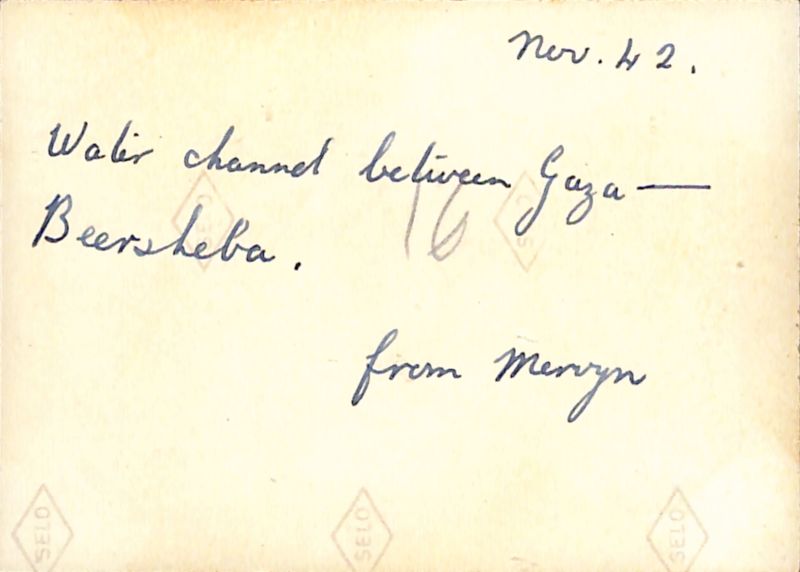 Nov. 42.
Water channel between Gaza —
Beersheba.
16
from Mervyn
SELO
SELO
SELO
SELO
SELO